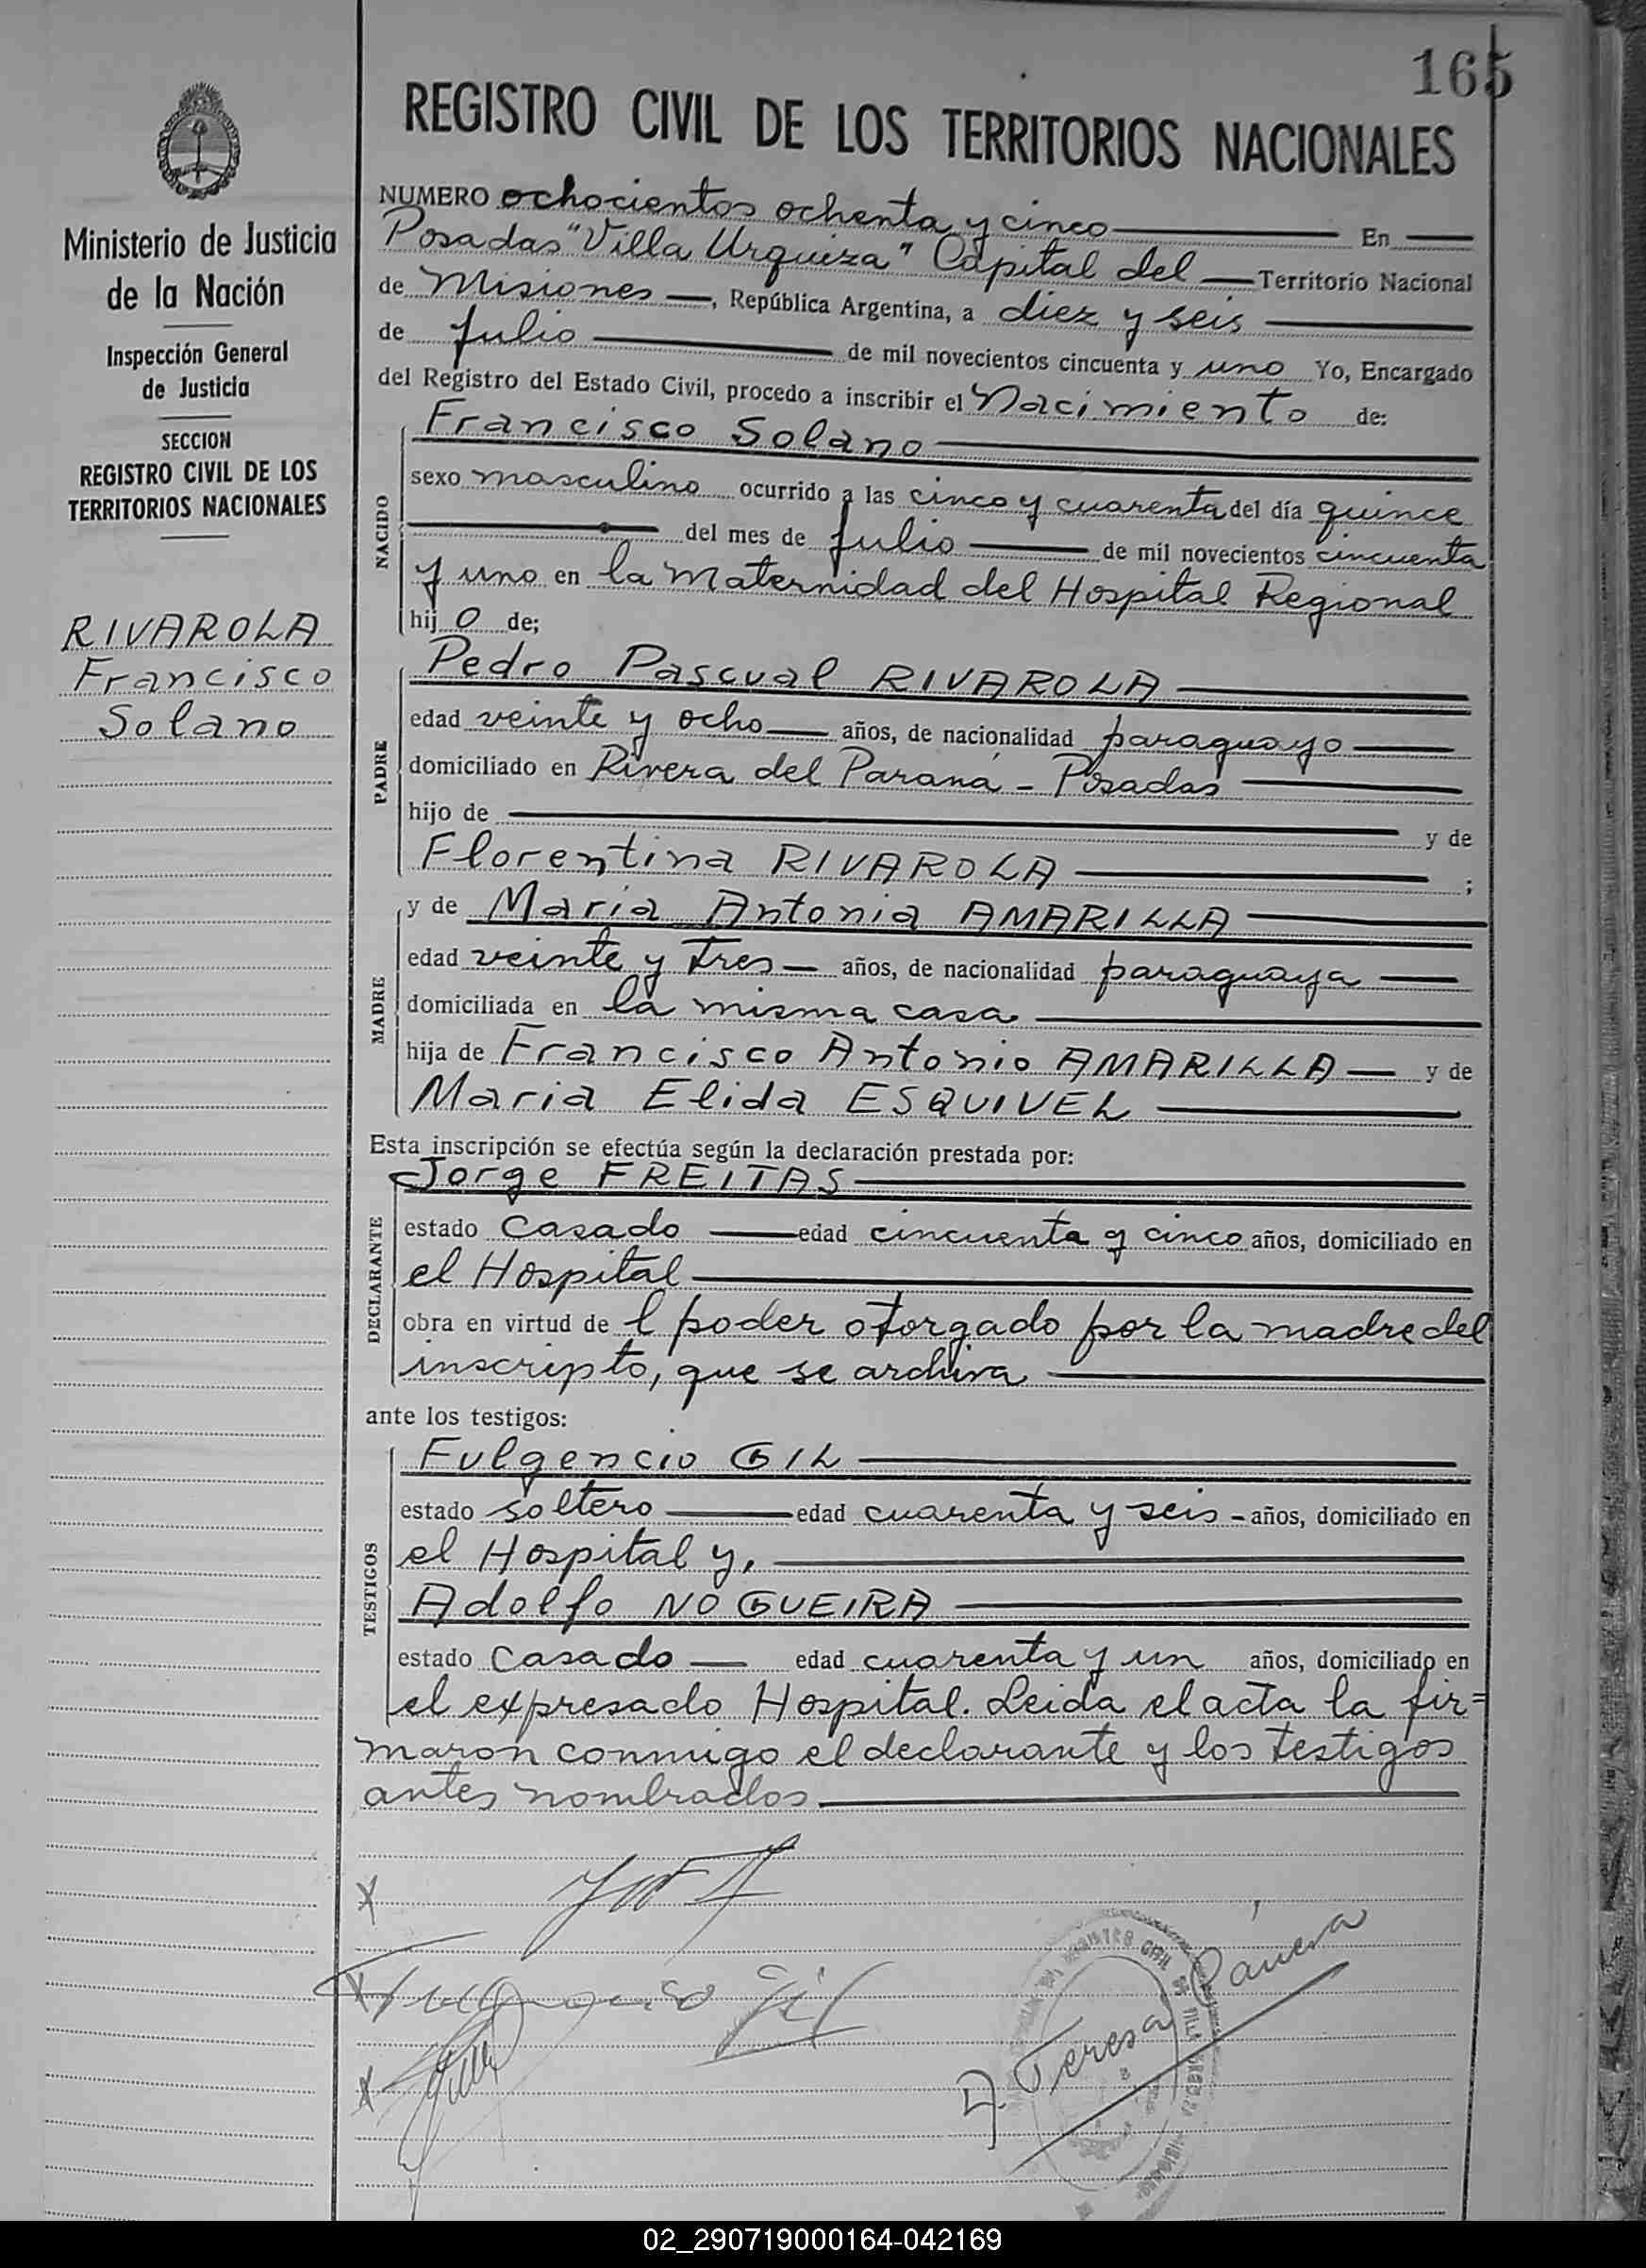 165
Ministerio de Justicia
de la Nación
Inspección General
de Justicia
SECCION
REGISTRO CIVIL DE LOS
TERRITORIOS NACIONALES
RIVAROLA
Francisco
Solano
REGISTRO CIVIL DE LOS TERRITORIOS NACIONALES
NUMERO ochocientos ochenta y cinco En
Posadas "Villa Urquiza" Capital del Territorio Nacional
de Misiones, República Argentina, a diez y seis
de Julio de mil novecientos cincuenta y uno Yo, Encargado
del Registro del Estado Civil, procedo a inscribir el Nacimiento de:
NACIDO
Francisco Solano
sexo masculino ocurrido a las cinco y cuarenta del día quince
del mes de Julio de mil novecientos cincuenta
y uno en la Maternidad del Hospital Regional
hijo de;
PADRE
Pedro Pascual RIVAROLA
edad veinte y ocho años, de nacionalidad paraguayo
domiciliado en Rivera del Paraná - Posadas
hijo de y de
Florentina RIVAROLA ;
MADRE
y de Maria Antonia AMARILLA
edad veinte y tres años, de nacionalidad paraguaya
domiciliada en la misma casa
hija de Francisco Antonio AMARILLA y de
Maria Elida ESQUIVEL
Esta inscripción se efectúa según la declaración prestada por:
DECLARANTE
Jorge FREITAS
estado casado edad cincuenta y cinco años, domiciliado en
el Hospital
obra en virtud del poder otorgado por la madre del
inscripto, que se archiva
ante los testigos:
TESTIGOS
Fulgencio GIL
estado soltero edad cuarenta y seis - años, domiciliado en
el Hospital y,
Adolfo NOGUEIRA
estado casado edad cuarenta y un años, domiciliado en
el expresado Hospital. Leida el acta la fir=
maron conmigo el declarante y los testigos
antes nombrados
Fulgencio Gil
Teresa
02_290719000164-042169